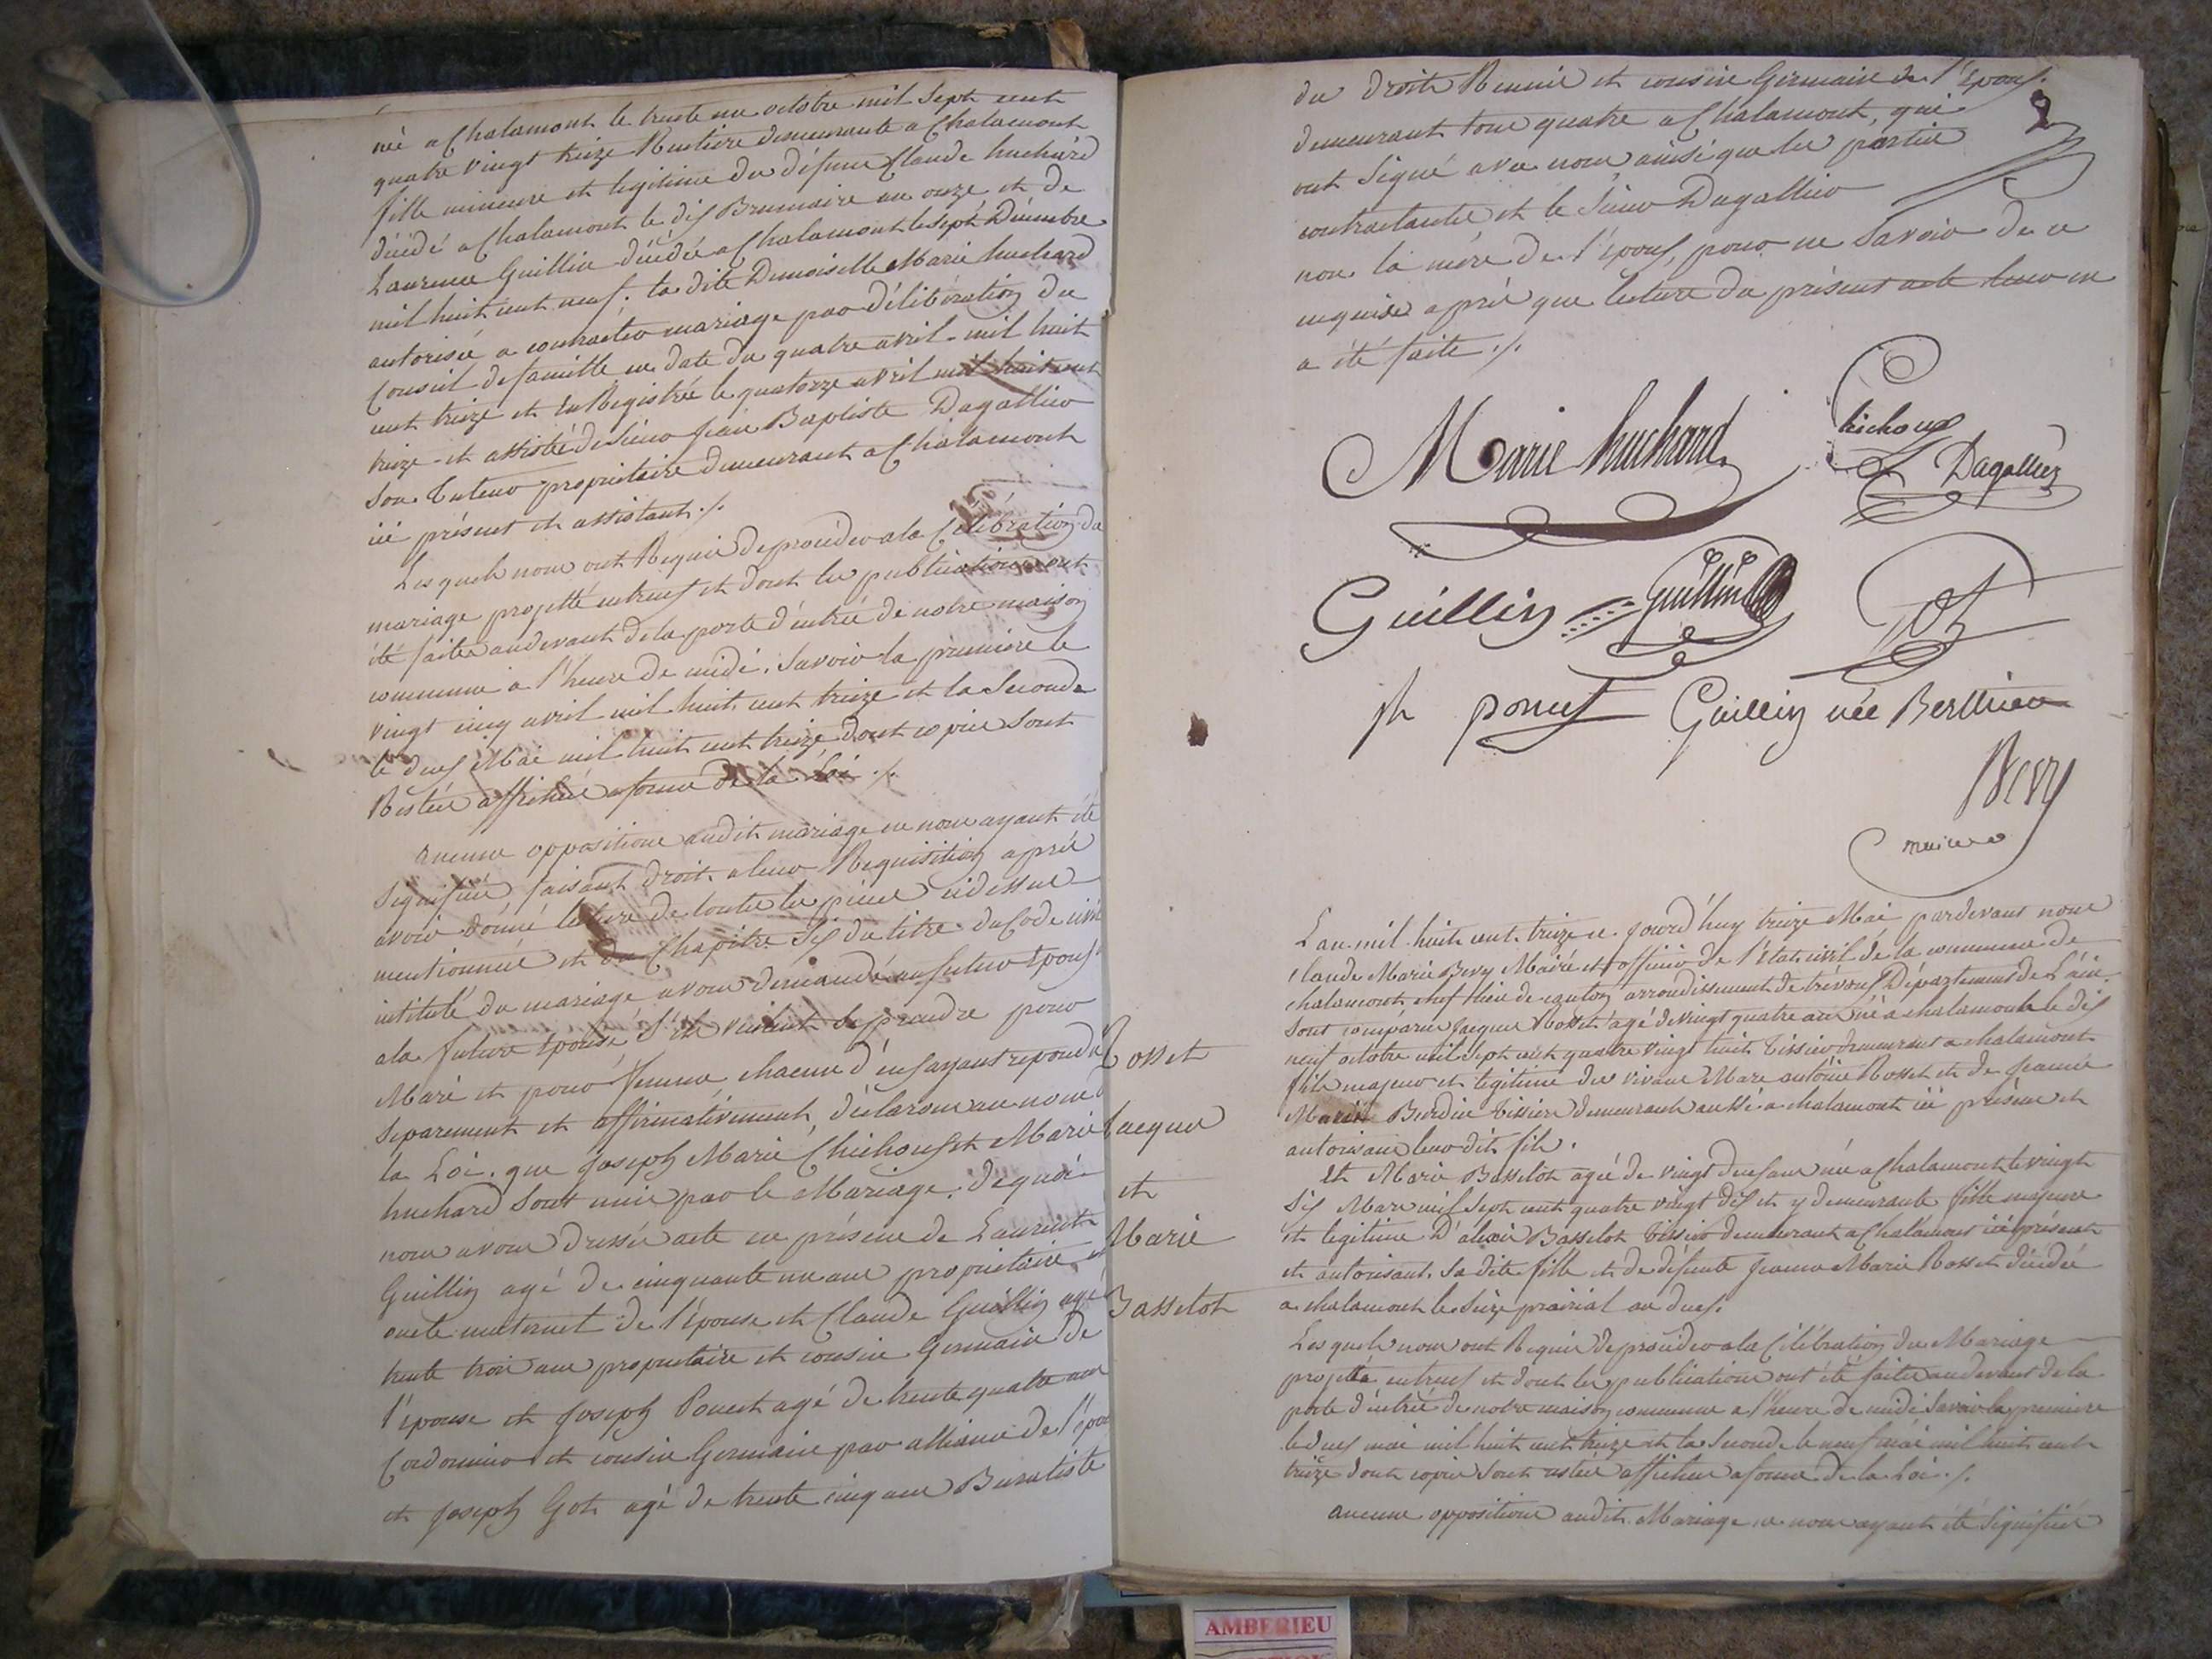 née a Chalamont le trente un octobre mil Sept cent
quatre vingt treize Rentière demeurante a Chalamont
fille mineure et legitime du défunt Claude huchard
décédé a Chalamont le dix Brumaire an onze et de
Laurence Guillin décédée a Chalamont le sept Décembre
mil huit cent neuf. la dite Demoiselle Marie huchard
autorisée a contracter mariage par délibération du
Conseil de famille en date du quatre avril mil huit
cent treize et En Registrée le quatorze avril mil huit cent
treize et assisté de Sieur jean Baptiste Dagallier
Son Tuteur propriétaire demeurant a Chalamont
ici présent et assistant ./.
Les quels nous ont Requis de procéder a la Célébration du
mariage projetté entreux et dont les publications ont
été faites audevant de la porte d'entrée de notre maison
commune a l'heure de midi. Savoir la premiere le
vingt cinq avril mil huit cent treize et la Seconde
le deux Mai mil huit cent treize dont copies Sont
Restées affichées a forme de la Loi ./.
aucune opposition audit mariage ne nous ayant été
Signifiée, faisant droit a leur Requisition après
avoir donné lecture de toutes les pièces cidessus
mentionnées et du Chapitre Six du titre du Code civil
intitulé du mariage avons demandé au futur Epoux
a la future Epouse S'ils veulent Se prendre pour
Mari et pour femme, chacun d'eux ayant repondu
Separement et affirmativement, déclarons au nom d
la Loi. que joseph Marie Chichoux et Marie
huchard Sont unis par le Mariage. de quoi
nous avons dressé acte en présence de Laurent
Guillin agé de cinquante un ans propriétaire et
oncle maternel de l'épouse et Claude Guillin agé
trente trois ans propriétaire et cousin Germain de
l'épouse et joseph Poncet agé de trente quatre ans
Cordonnier et cousin Germain par alliance de l'épou
et joseph Got agé de trente cinq ans Buraliste
du droits Reunis et cousin Germain de l'Epoux.
demeurant tous quatre a Chalamont, qui
ont Signé avec nous ainsi que les parties
contractantes et le Sieur Dagallier
non la mère de l'époux, pour ne Savoir de ce
enquise après que lecture du présent acte leur en
a été faite ./.
Marie huchard
Chichoux
Dagallier
Guillin
Guillin
Got
jh poncet
Guillin née Berthier
Bevy
maire
Rosset
Jacques
et
Marie
Basselot
L'an mil huit cent treize ce jourd'huy treize Mai pardevant nous
Claude Marie Bevy Maire et officier de l'état civil de la commune de
chalamont chef lieu de canton arrondissement de trévoux Département de L'ain
Sont comparus Jacques Rosset agé de vingt quatre ans né a chalamont le dix
neuf octobre mil Sept cent quatre vingt huit Tissier demeurant a chalamont
fils majeur et legitime des vivans Marc antoine Rosset et de jeanne
Marie Burdin Tissiers demeurants aussi a chalamont ici présens et
autorisans leur dit fils.
Et Marie Basselot agée de vingt deux ans née a Chalamont le vingt
Six Mars mil Sept cent quatre vingt dix et y demeurante fille majeure
et legitime D'alexis Basselot Tissier demeurant a Chalamont ici présent
et autorisant Sa dite fille et de défunte jeanne Marie Rosset décédée
a chalamont le Seize prairial an deux.
Les quels nous ont Requis de procéder a la Célébration du Mariage
projetté entreux et dont les publications ont été faites audevant de la
porte d'entrée de notre maison commune a l'heure de midi Savoir la premiere
le deux mai mil huit cent treize et la Seconde le neuf mai mil huit cent
treize dont copies Sont restées affichées a forme de la Loi ./.
aucune opposition audit Mariage ne nous ayant été Signifiée
AMBERIEU